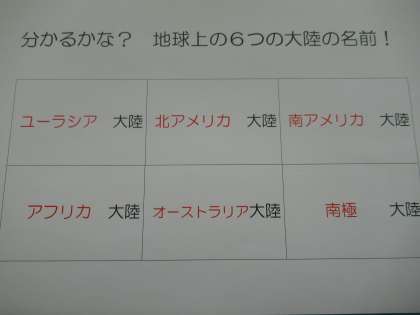 分かるかな？　地球上の６つの大陸の名前！
ユーラシア　大陸　北アメリカ　大陸　南アメリカ　大陸
アフリカ　大陸　オーストラリア大陸　南極　大陸